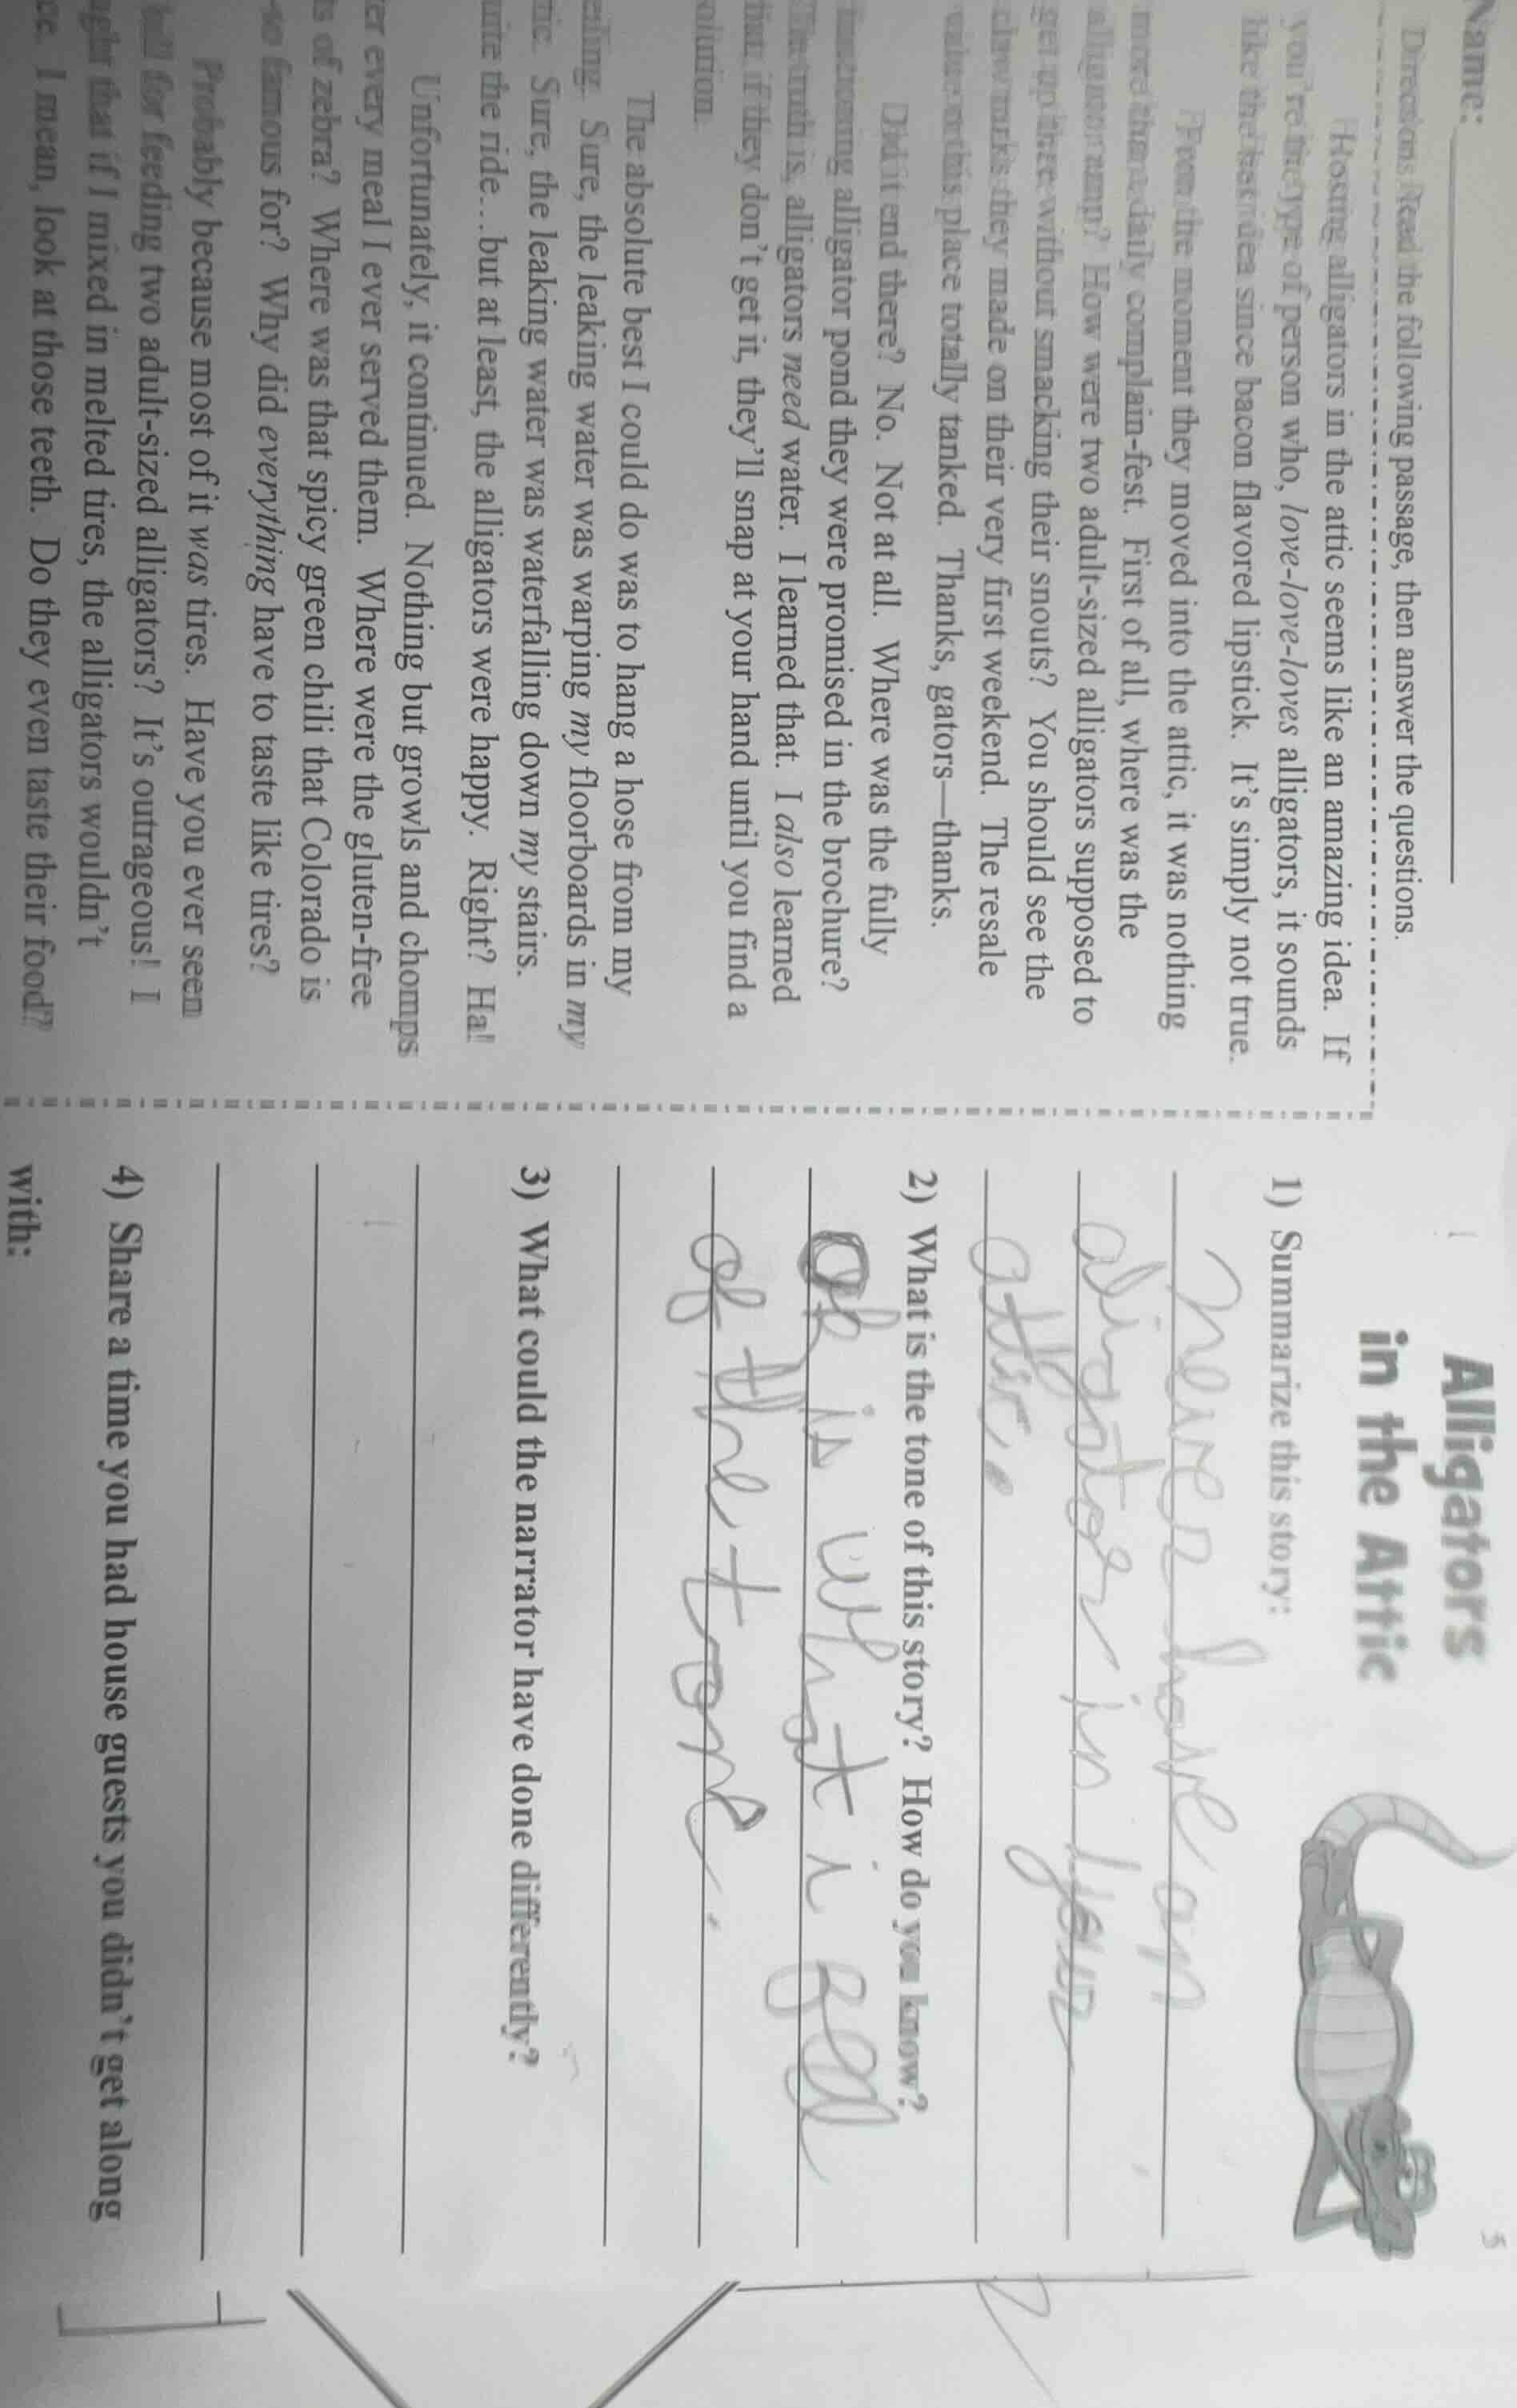 Name:
Directions Read the following passage, then answer the questions.
Hosting alligators in the attic seems like an amazing idea. If
you're the type of person who, love-love-loves alligators, it sounds
like the best idea since bacon flavored lipstick. It's simply not true.
From the moment they moved into the attic, it was nothing
more than a daily complain-fest. First of all, where was the
alligator ramp? How were two adult-sized alligators supposed to
get up there without smacking their snouts? You should see the
claw marks they made on their very first weekend. The resale
value on this place totally tanked. Thanks, gators—thanks.
Did it end there? No. Not at all. Where was the fully
functioning alligator pond they were promised in the brochure?
The truth is, alligators need water. I learned that. I also learned
that if they don't get it, they'll snap at your hand until you find a
olution.
The absolute best I could do was to hang a hose from my
eiling. Sure, the leaking water was warping my floorboards in my
tic. Sure, the leaking water was waterfalling down my stairs.
uite the ride...but at least, the alligators were happy. Right? Ha!
Unfortunately, it continued. Nothing but growls and chomps
er every meal I ever served them. Where were the gluten-free
ts of zebra? Where was that spicy green chili that Colorado is
so famous for? Why did everything have to taste like tires?
Probably because most of it was tires. Have you ever seen
bill for feeding two adult-sized alligators? It's outrageous! I
ught that if I mixed in melted tires, the alligators wouldn't
ce. I mean, look at those teeth. Do they even taste their food?
Alligators
in the Attic
1) Summarize this story:
Never have an
aligator in your
attic.
2) What is the tone of this story? How do you know?
ok is what i feel
of the tone.
3) What could the narrator have done differently?
4) Share a time you had house guests you didn't get along
with:
5